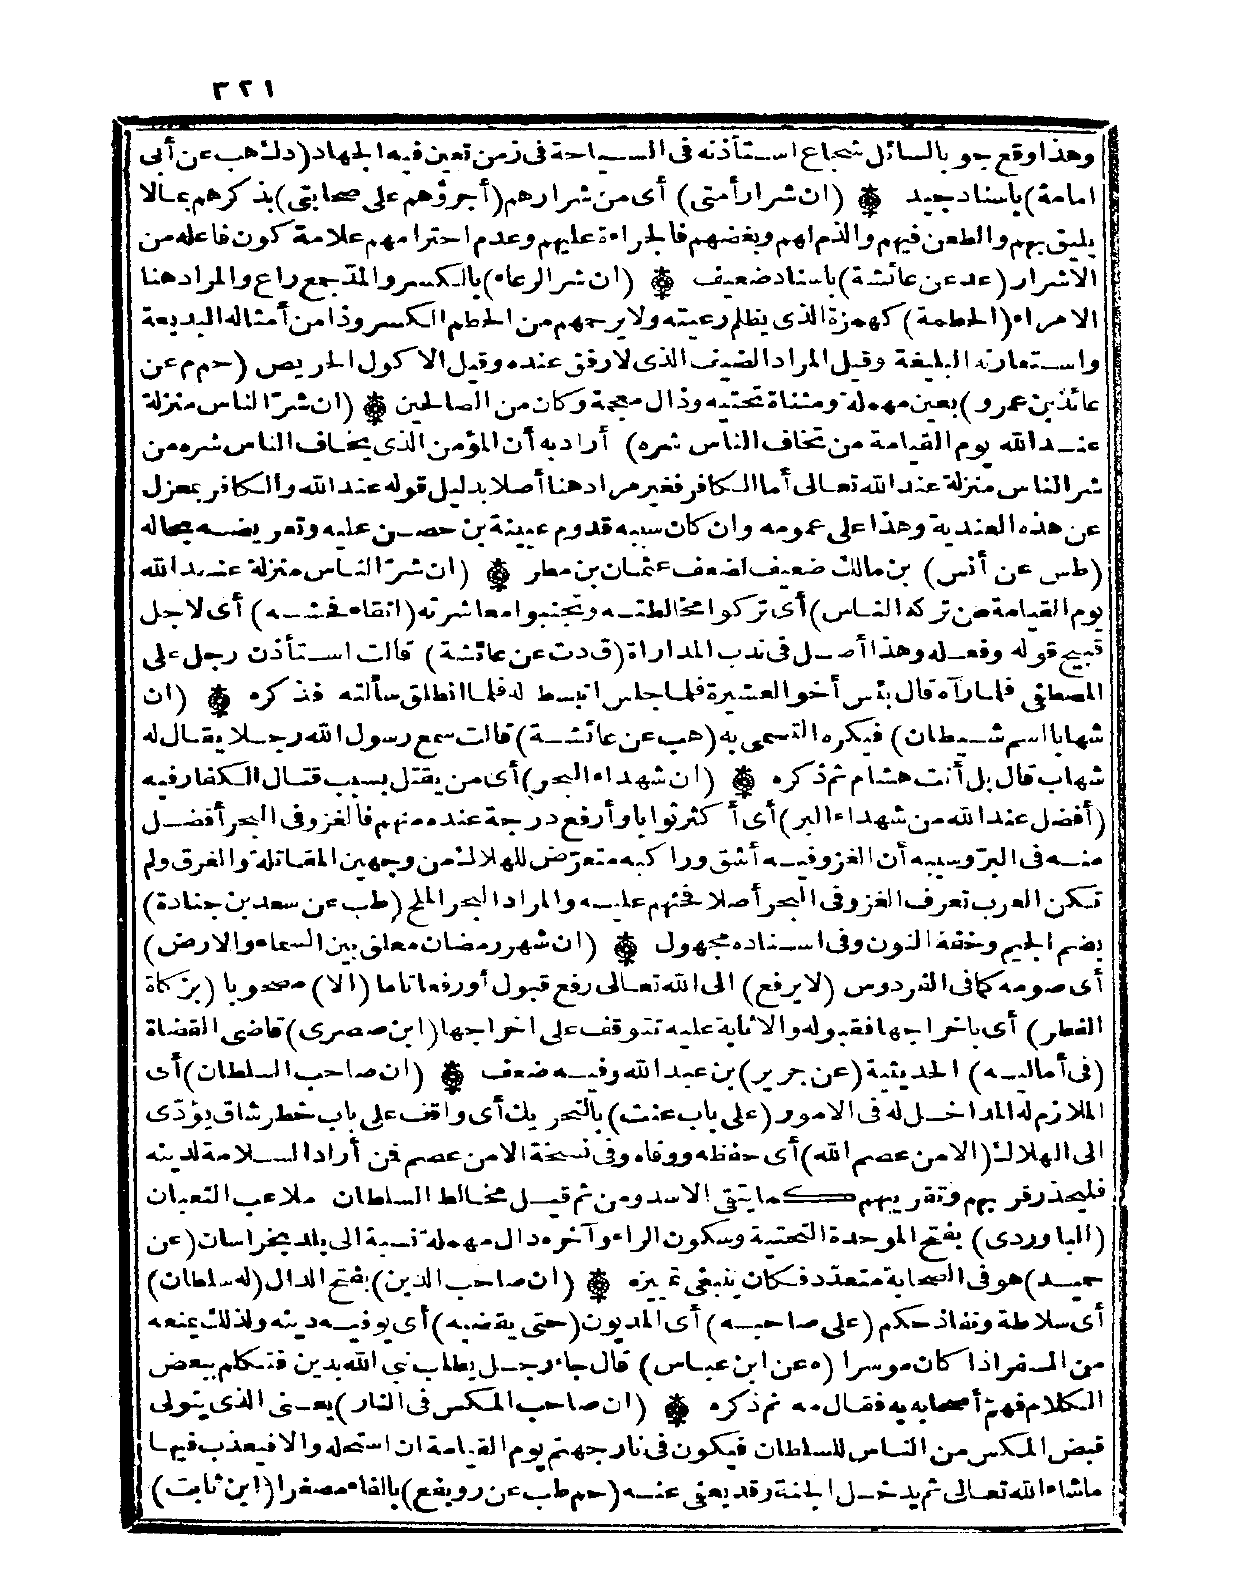 ٣٢١
وهذا وقع جوبا لسائل شجاع استأذنه فى السياحة فى زمن تعين فيه الجهاد (دك هب عن أبى
امامة) باسناد جيد ۞ (ان شرار أمتى) أى من شرارهم (أجرؤهم على صحابتى) بذكرهم بمالا
يليق بهم والطعن فيهم والذم لهم وبغضهم فالجراءة عليهم وعدم احترامهم علامة كون فاعله من
الاشرار (عد عن عائشة) باسناد ضعيف ۞ (ان شر الرعاء) بالكسر والمد جمع راع والمراد هنا
الامراء (الحطمة) كهمزة الذى يظلم رعيته ولا يرحمهم من الحطم الكسر وذا من أمثاله البديعة
واستعارته البليغة وقيل المراد الضيف الذى لا رفق عنده وقيل الاكول الحريص (حم م عن
عائذ بن عمرو) بعين مهملة ومثناة تحتيه وذال معجمة وكان من الصالحين ۞ (ان شرّ الناس منزلة
عند الله يوم القيامة من تخاف الناس شره) أراد به أن المؤمن الذى يخاف الناس شره من
شر الناس منزلة عند الله تعالى أما الكافر فغير مراد هنا أصلا بدليل قوله عند الله والكافر بمعزل
عن هذه العندية وهذا على عمومه وان كان سببه قدوم عيينة بن حصن عليه وتعريضه بحاله
(طس عن أنس) بن مالك ضعيف لضعف عثمان بن مطر ۞ (ان شرّ الناس منزلة عند الله
يوم القيامة من تركه الناس) أى تركوا مخالطته وتجنبوا معاشرته (اتقاء فحشه) أى لاجل
قبيح قوله وفعله وهذا أصل فى ندب المداراة (ق د ت عن عائشة) قالت استأذن رجل على
المصطفى فلما رآه قال بئس أخو العشيرة فلما جلس انبسط له فلما انطلق سألته فذكره ۞ (ان
شهابا اسم شيطان) فيكره التسمى به (هب عن عائشة) قالت سمع رسول الله رجلا يقال له
شهاب قال بل أنت هشام ثم ذكره ۞ (ان شهداء البحر) أى من يقتل بسبب قتال الكفار فيه
(أفضل عند الله من شهداء البر) أى أكثر ثوابا وأرفع درجة عنده منهم فالغزو فى البحر أفضل
منه فى البرّ وسببه أن الغزو فيه أشق وراكبه متعرّض للهلاك من وجهين المقاتلة والغرق ولم
تكن العرب تعرف الغزو فى البحر أصلا فحثهم عليه والمراد البحر الملح (طب عن سعد بن جنادة)
بضم الجيم وخفة النون وفى اسناده مجهول ۞ (ان شهر رمضان معلق بين السماء والارض)
أى صومه كما فى الفردوس (لا يرفع) الى الله تعالى رفع قبول أو رفعا تاما (الا) مصحوبا (بزكاة
الفطر) أى باخراجها فقبوله والاثابة عليه تتوقف على اخراجها (ابن صصرى) قاضى القضاة
(فى أماليه) الحديثية (عن جرير) بن عبد الله وفيه ضعف ۞ (ان صاحب السلطان) أى
الملازم له المداخل له فى الامور (على باب عنت) بالتحريك أى واقف على باب خطر شاق يؤدّى
الى الهلاك (الا من عصم الله) أى حفظه ووقاه وفى نسخة الا من عصم فمن أراد السلامة لدينه
فليحذر قربهم وتقريبهم كما يتقى الاسد ومن ثم قيل مخالط السلطان ملاعب الثعبان
(الباوردى) بفتح الموحدة التحتية وسكون الراء وآخره دال مهملة نسبة الى بلد بخراسان (عن
حميد) هو فى الصحابة متعدّد فكان ينبغى تمييزه ۞ (ان صاحب الدين) بفتح الدال (له سلطان)
أى سلاطة ونفاذ حكم (على صاحبه) أى المديون (حتى يقضيه) أى يوفيه دينه ولذلك يمنعه
من السفر اذا كان موسرا (ه عن ابن عباس) قال جاء رجل يطلب نبى الله بدين فتكلم ببعض
الكلام فهمّ أصحابه به فقال مه ثم ذكره ۞ (ان صاحب المكس فى النار) يعنى الذى يتولى
قبض المكس من الناس للسلطان فيكون فى نار جهنم يوم القيامة ان استحله والا فيعذب فيها
ما شاء الله تعالى ثم يدخل الجنة وقد يعفى عنه (حم طب عن رويفع) بالفاء مصغرا (ابن ثابت)